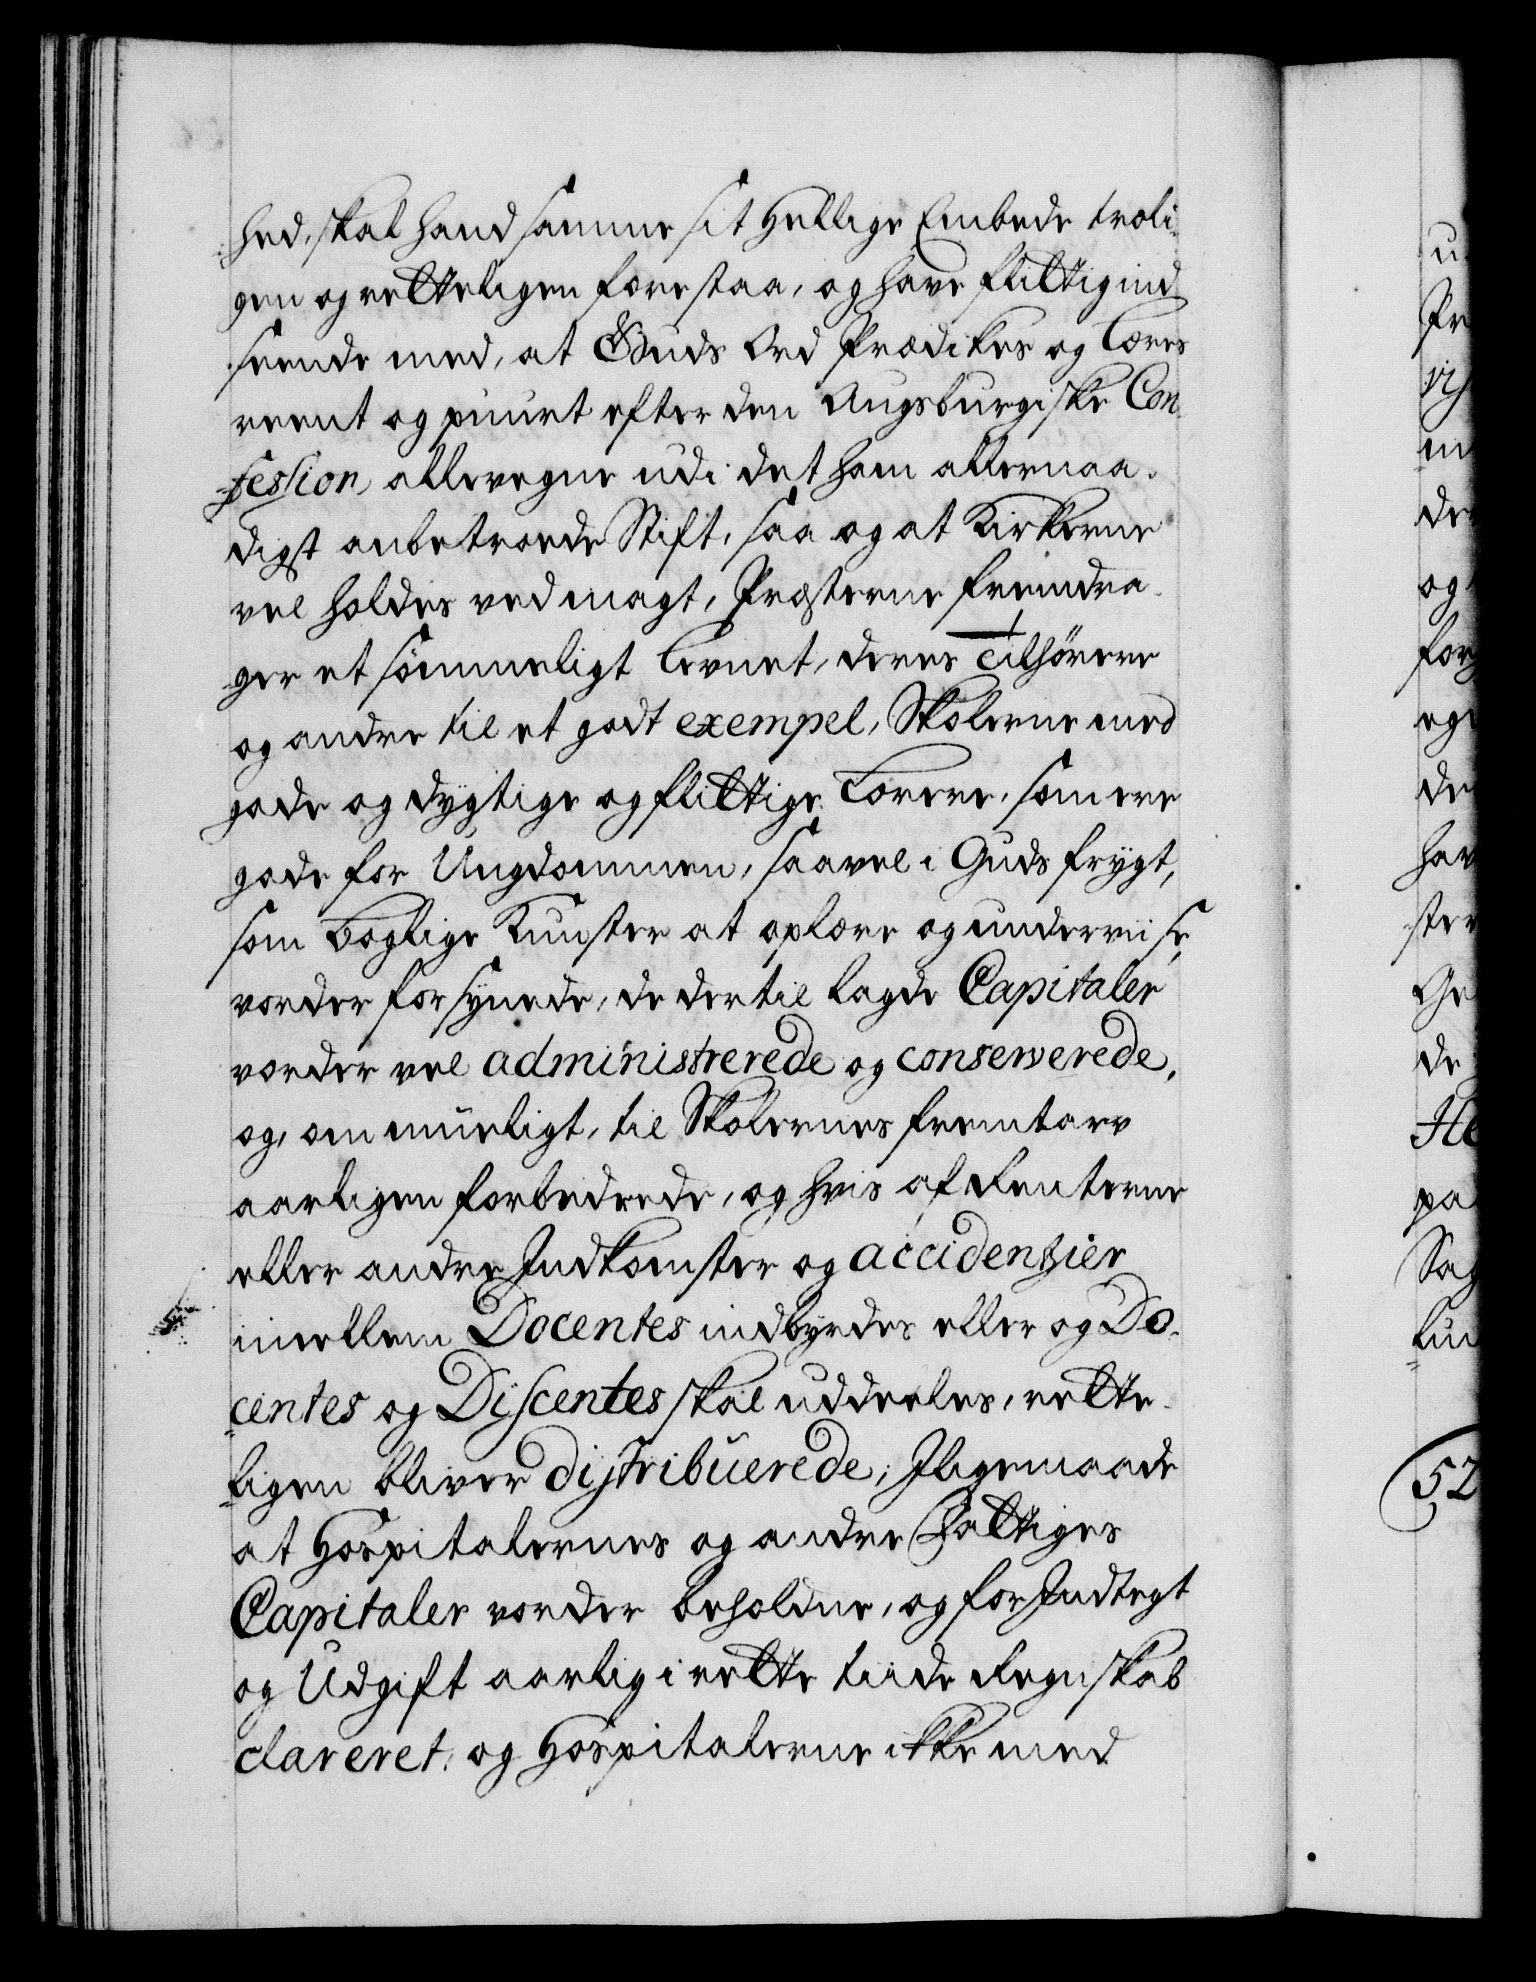 hed, skal hand samme sit Hellige Embede troli-
gen og retteligen forestaa, og have flittig ind-
seende med, at Guds Ord Prædikes og Læres
reent og puurt efter den Augsburgiske Con-
fession, allevegne udi det ham allernaa-
digst anbetroede Stift, saa og at Kirkerne
vel holdes ved magt, Præsterne fremdra-
ger et sömmeligt Levnet, deres Tilhörere
og andre til et godt exempel, Skolerne med
gode og dygtige og flittige Lærere, som ere
gode for Ungdommen, saavel i Guds frygt,
som Boglige Kunster at oplære og underviise,
vorder forsynede, de dertil lagde Capitaler
vorder vel administrerede og conserverede,
og, om mueligt, til Skolernes fremtarv
aarligen forbedrede, og hvis af Renterne
eller andre Indkomster og accidentzier
imellem Docentes indbyrdes eller og Do-
centes og Discentes skal uddeeles, rette-
ligen bliver distribuerede; Jligemaade
at Hospitalernes og andre Fattiges
Capitaler vorder beholdne, og for Indtegt
og Udgift aarlig i rette tiide Regnskab
clareret, og Hospitalerne ikke med
52